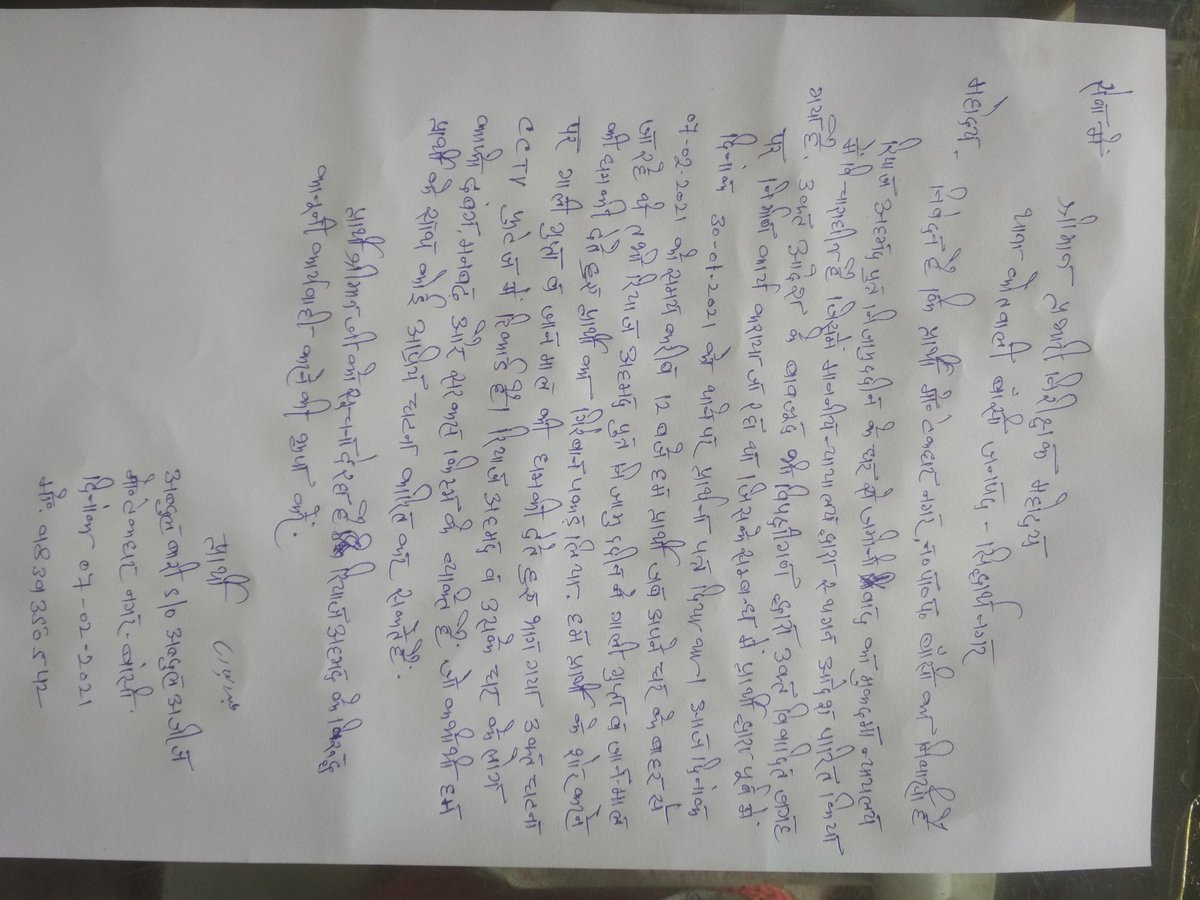 सेवा में
श्रीमान प्रभारी निरीक्षक महोदय
थाना कोतवाली बांसी जनपद - सिद्धार्थनगर
महोदय,
निवेदन है कि प्रार्थी नगर, न०पा०प० बांसी का निवासी है
रियाज अहमद पुत्र निजामुद्दीन के घर से जमीनी विवाद का मुकदमा न्यायालय
में विचाराधीन है जिसमें माननीय न्यायालय द्वारा स्थगन आदेश पारित किया
गया है, उक्त आदेश के बावजूद भी विपक्षीगण द्वारा उक्त विवादित जगह
पर निर्माण कार्य कराया जा रहा था जिसके सम्बन्ध में प्रार्थी द्वारा पूर्व में
दिनांक 30-01-2021 को थाने पर प्रार्थना पत्र दिया था। आज दिनांक
07-02-2021 को समय करीब 12 बजे हम प्रार्थी जब अपने घर के बाहर से
जा रहे थे तभी रियाज अहमद पुत्र निजामुद्दीन ने गाली गुप्ता व जानमाल
की धमकी देते हुए प्रार्थी का गिरेबान पकड़ लिया, हम प्रार्थी के शोर करने
पर गाली गुप्ता व जान माल की धमकी देते हुए भाग गया उक्त घटना
CCTV फुटेज में रिकार्ड है। रियाज अहमद व उसके घर के लोग
काफी दबंग, मनबढ़ और सरकश किस्म के व्यक्ति हैं, जो कभी भी हम
प्रार्थी के साथ कोई अप्रिय घटना कारित कर सकते हैं.
प्रार्थी श्रीमान जी को सूचना दे रहा है रियाज अहमद के विरुद्ध
कानूनी कार्यवाही करने की कृपा करें.
प्रार्थी
अब्दुल बारी S/o अब्दुल अजीज
नगर - बांसी
दिनांक 07-02-2021